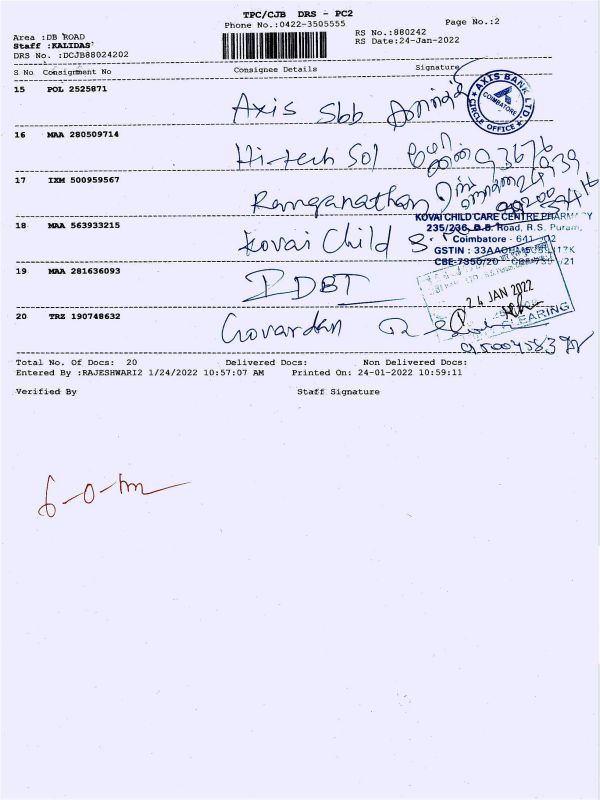 TPC/CJB DRS - PC2
Phone No.:0422-3505555
Page No.:2
Area :DB ROAD
Staff :KALIDAS
DRS No. :DCJB88024202
RS No.:880242
RS Date:24-Jan-2022
S No Consignment No Consignee Details Signature
15 POL 2525871 Axis Sbb
AXIS BANK LTD.
COIMBATORE
CIRCLE OFFICE
16 MAA 280509714 Hi-tech Sol
17 IXM 500959567 Ranganathan
18 MAA 563933215 Kovai Child
KOVAI CHILD CARE CENTRE PHARMACY
235/236, D.B. Road, R.S. Puram,
Coimbatore - 641 002
GSTIN : 33
CBE-7350/20
19 MAA 281636093 IDBI
24 JAN 2022
CLEARING
20 TRZ 190748632 Govardan
Total No. Of Docs: 20 Delivered Docs: Non Delivered Docs:
Entered By :RAJESHWARI2 1/24/2022 10:57:07 AM Printed On: 24-01-2022 10:59:11
Verified By Staff Signature